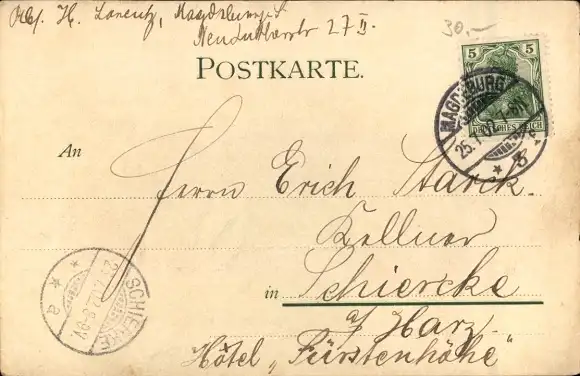 Abs. H. Lorentz, Magdeburg S.
Neustädterstr 27 II.
30,-
POSTKARTE.
5 5
DEUTSCHES REICH
MAGDEBURG
25.1.02.
* 5
An
Herrn Erich Starck
Kellner
in Schiercke
a/ Harz
Hôtel „Fürstenhöhe"
SCHIERKE
* a *